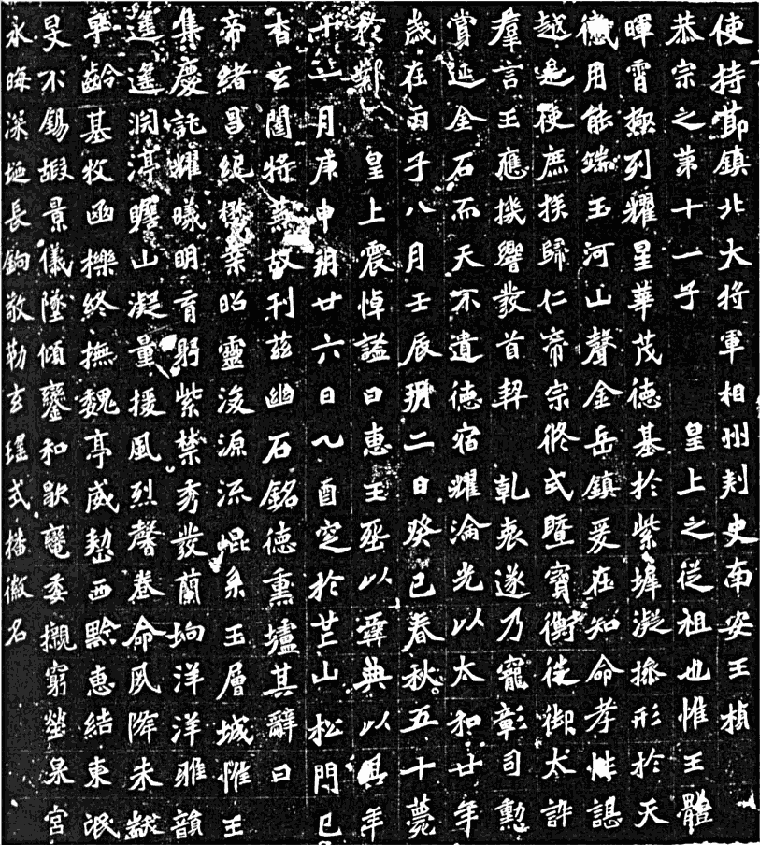 使持節鎮北大將軍相州刺史南安王楨
恭宗之第十一子　皇上之從祖也惟王體
暉霄極列耀星華茂德基於紫墀凝操形於天
儀用能端玉河山聲金岳鎮爰在知命孝性諶
越是使庶族歸仁帝宗攸式暨寶衡徙御太訊
羣言王應機響發首契　乾衷遂乃寵彰司勳
賞延金石而天不遺德宿耀淪光以太和廿年
歲在丙子八月壬辰朔二日癸巳春秋五十薨
於鄴　皇上震悼謚曰惠王葬以彝典以其年
十一月庚申朔廿六日乙酉窆於芒山松門已
杳玄闥將蕪故刊茲幽石銘德熏壚其辭曰
帝緒昌紀懋業昭靈浚源流崐系玉層城惟王
集慶託耀曦明育躬紫禁秀發蘭坰洋洋雅韻
遙遙淵渟瞻山凝量援風烈馨卷命夙降未黻
早齡基牧豳櫟終撫魏亭威整西黔惠結東氓
旻不錫嘏景儀墜傾鑾和歇轙委櫬窮塋泉宮
永晦深埏長鋦敬勒玄瑤式播徽名